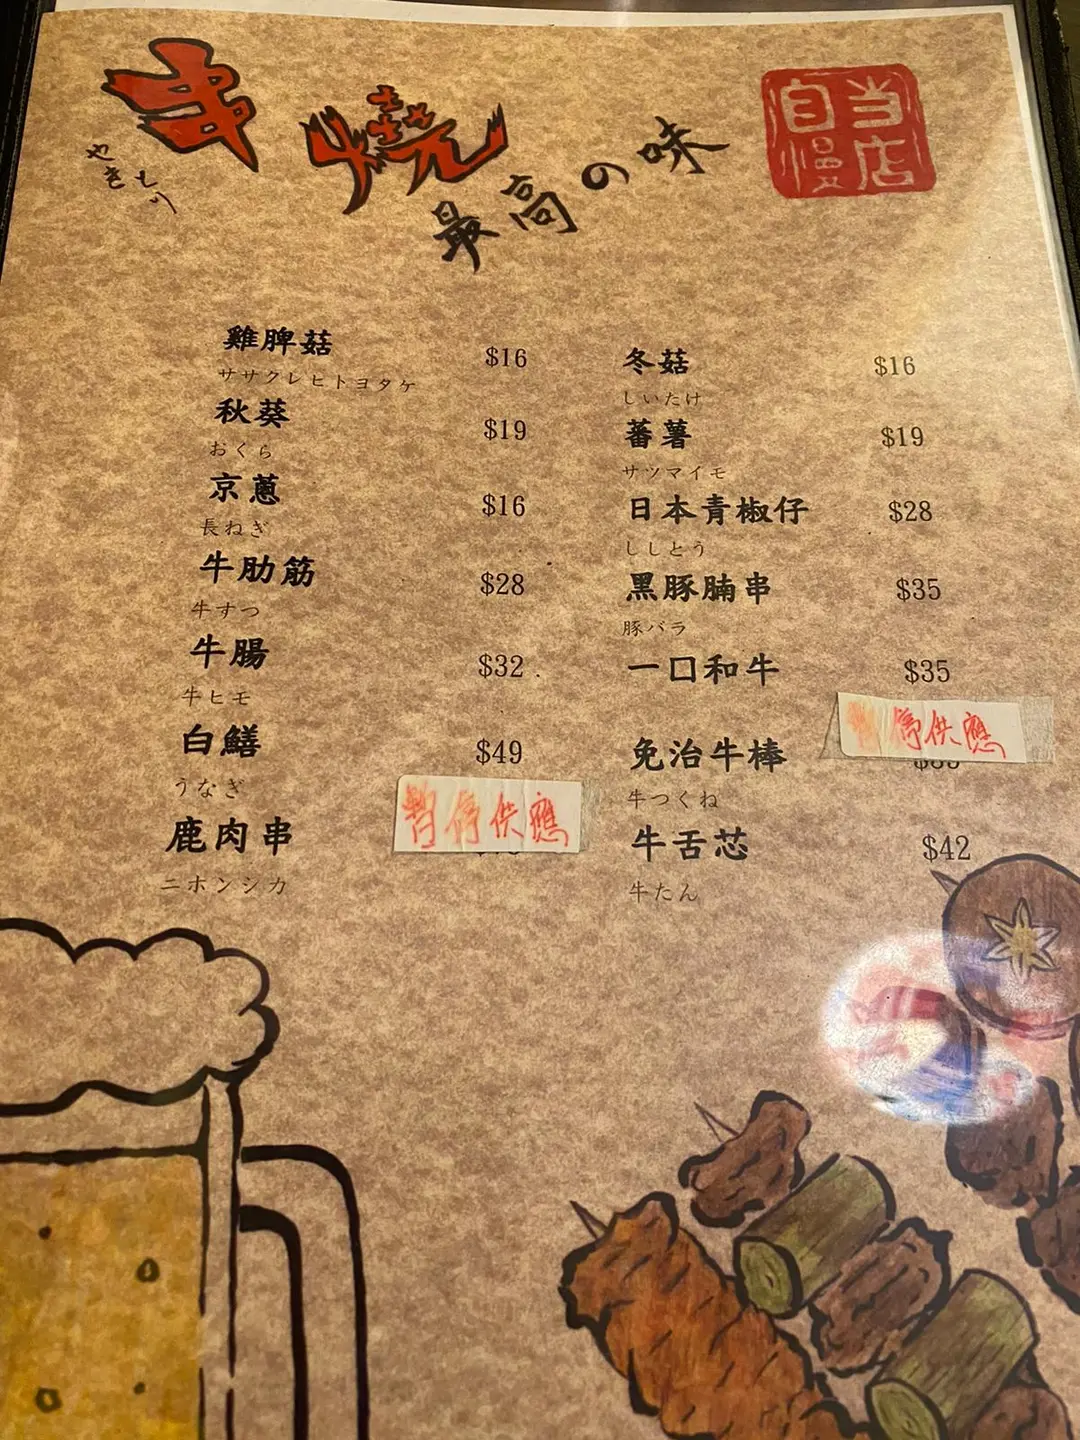 串燒
やきとり
最高の味
当店
自慢
雞脾菇 $16
ササクレヒトヨタケ
秋葵 $19
おくら
京蔥 $16
長ねぎ
牛肋筋 $28
牛すつ
牛腸 $32
牛ヒモ
白鱔 $49
うなぎ
暫停供應
鹿肉串
ニホンシカ
冬菇 $16
しいたけ
蕃薯 $19
サツマイモ
日本青椒仔 $28
ししとう
黑豚腩串 $35
豚バラ
一口和牛 $35
暫停供應
免治牛棒
牛つくね
牛舌芯 $42
牛たん